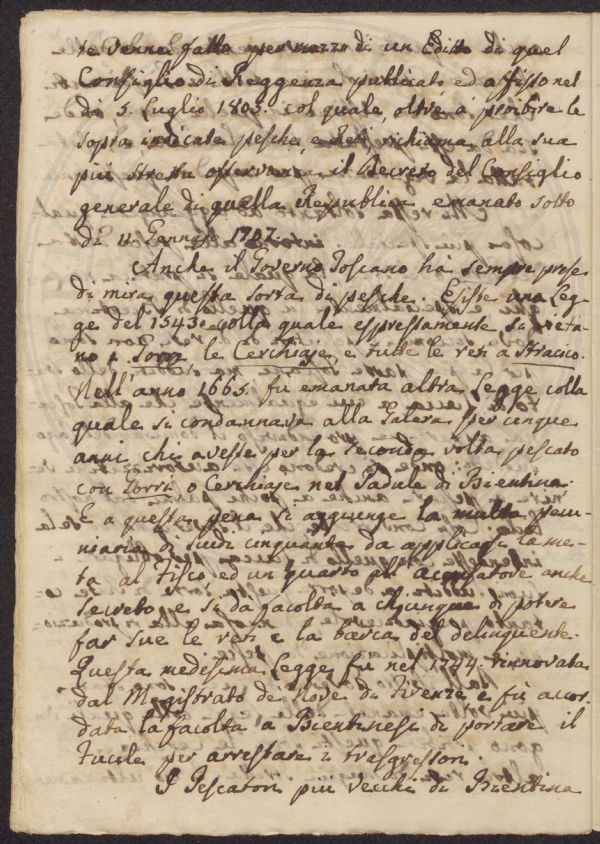 te venne fatto per mezzo di un Editto di quel
Consiglio di Reggenza publicato ed affisso nel
dì 5. Luglio 1805. col quale, oltre a proibire le
sopra indicate pesche, richiama alla sua
più stretta osservanza il Decreto del Consiglio
generale di quella Republica emanato sotto
dì 11 Gennajo 1707.
Anche il Governo Toscano ha sempre prese
di mira questa sorta di pesche. Esiste una Leg-
ge del 1543. colla quale espressamente si vieta-
no i Zorri, le Cerchiaje e tutte le reti a Stracico.
Nell'anno 1665. fu emanata altra Legge colla
quale si condannava alla Galera per cinque
anni chi avesse per la seconda volta pescato
con Zorri o Cerchiaje nel Padule di Bientina.
E a questa pena si aggiunge la multa pecu-
niaria di scudi cinquanta da applicarsi la me-
tà al Fisco ed un quarto all' accusatore anche
secreto e si dà facoltà a chiunque di potere
far sue le reti e la barca del delinquente.
Questa medesima Legge fu nel 1744. rinnovata
dal Magistrato dei Nove di Firenze e fù accor-
data la facoltà a Bientinesi di portare il
Fucile per arrestare i trasgressori.
I Pescatori più vecchi di Bientina